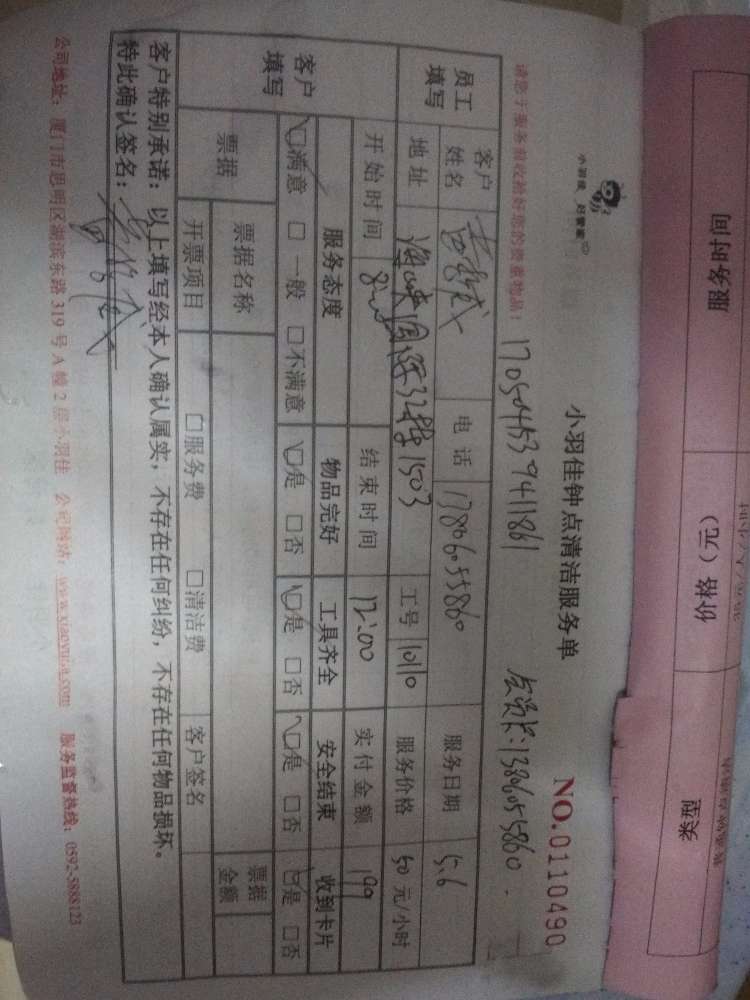 服务时间
价格（元）
类型
小羽佳 好管家
小羽佳钟点清洁服务单
NO.0110490
请您于服务前收拾好您的贵重物品！
1705041539411861
会员卡:13860155860
员工填写
客户姓名
电话
服务日期 5.6
地址
国际32楼1503
工号 10110
服务价格 50 元/小时
开始时间 8:00
结束时间 12:00
实付金额 199
客户填写
服务态度 物品完好 工具齐全 安全结束 收到卡片
☑满意 □一般 □不满意 ☑是 □否 ☑是 □否 ☑是 □否 ☑是 □否
票据
票据名称
票据金额
开票项目 □服务费 □清洁费 客户签名
客户特别承诺：以上填写经本人确认属实，不存在任何纠纷，不存在任何物品损坏。
特此确认签名：
公司地址：厦门市思明区湖滨东路 319 号 A 幢 2 层小羽佳 公司网站：www.xiaoyujia.com 服务监督热线：0592-5888123